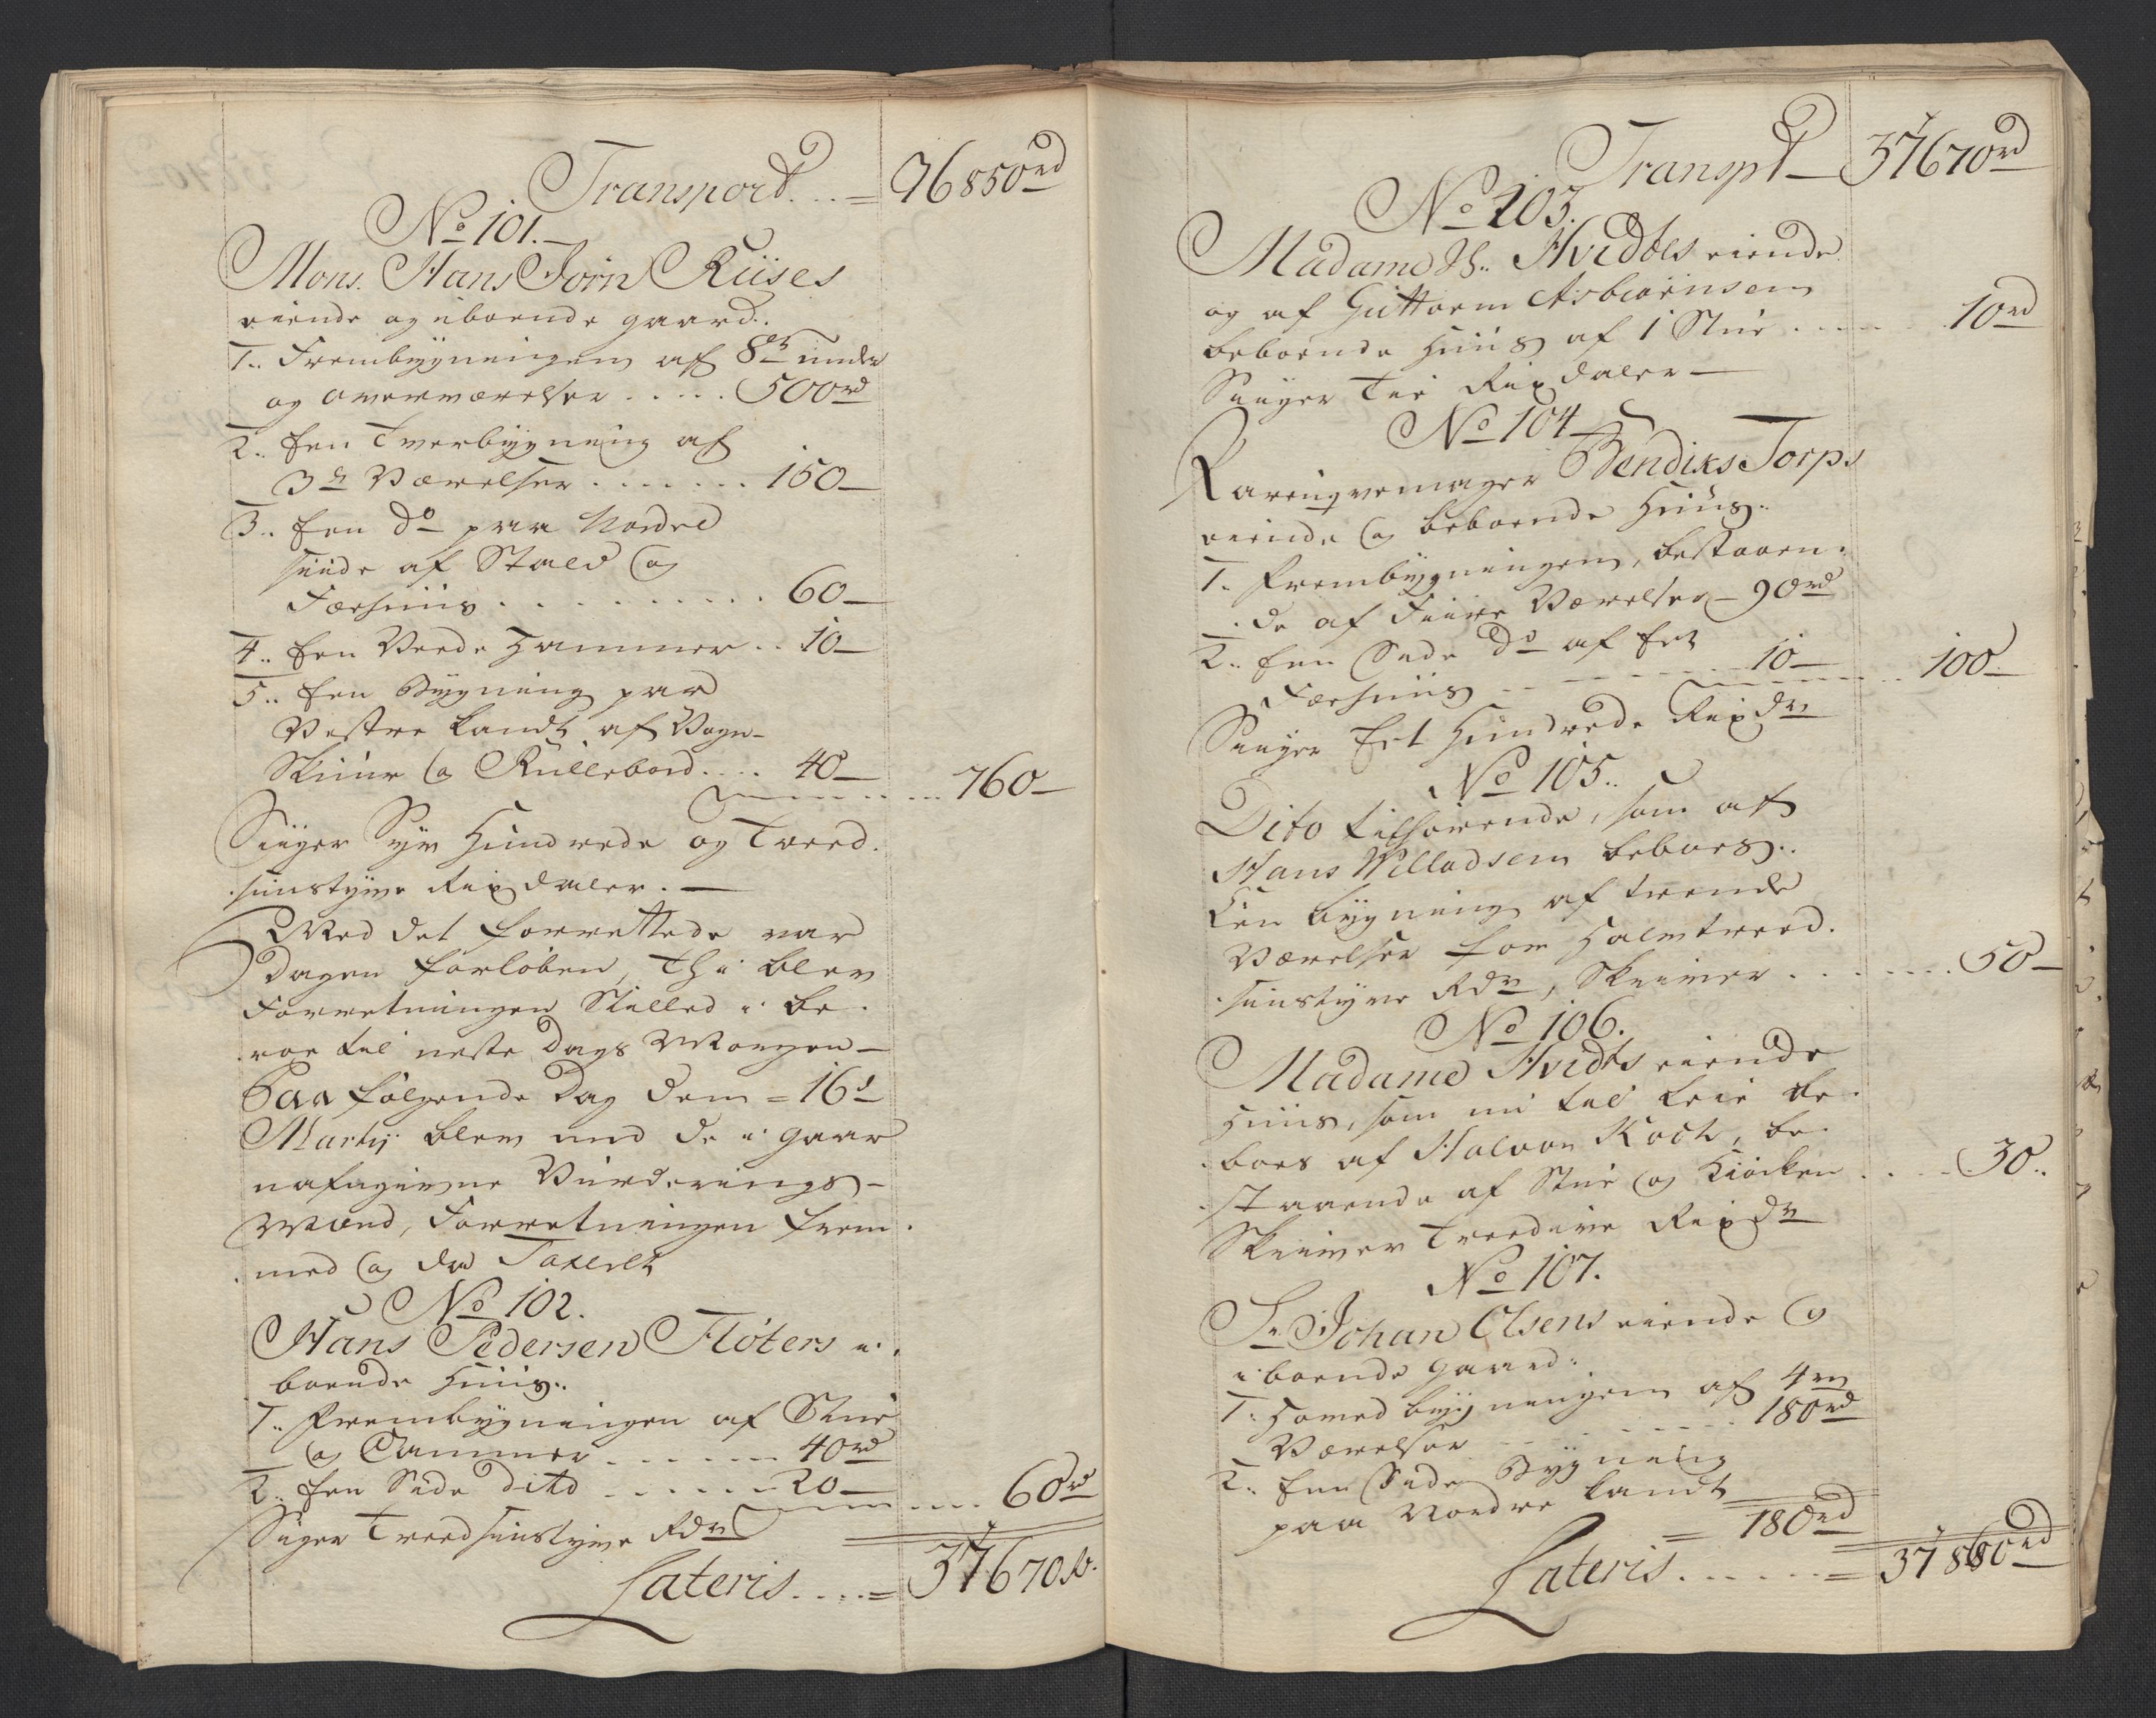 Transport... = 36850rd
No 101.
Mons. Hans Jörn Riises
eiende og iboende gaard..
1.. Frembygningen af 8te under
og overværelser ..... 500rd
2.. Een Tverbygning af
3de Værelser ....... 150
3.. Een do paa Nordre
siide af Stald og
Fæehuus .......... 60
4.. Een Vede Hammer .. 10
5.. Een Bygning paa
Vestre kandt af Vogn-
Skuur og Rullebod .... 40 ..... 760
Siiger Syv Hundrede og Treed.
sinstyve Rixdaler.
Med det forrettede var
Dagen forløben, thi blev
Forretningen Stilled i be.
roe til neste Dags Morgen
Paa følgende Dag dem = 16de
Martij blev med de i gaar
Vurderings-
Mænd, Forretningen frem.
med og da Taxeret
No 102.
Hans Pedersen Flöters i.
boende Huus..
1.. Frembygningen af Stue
og Cammer ....... 40rd
2.. Een Side dito ..... 20 ..... 60rd
Siger Treedsinstyve Rdr
Lateris .... = 37670rd.
Transpt 37670rd
No 103.
Madame Hvidtes eiende
og af Guttorm Asbiörnsen
beboende Huus af 1 Stue .... 10rd
Siiger Tie Rixdaler
No 104
Parruqvemager Bendix Torps
eiende og beboende Huus..
1. Frembygningen, bestaaen.
de af Fiire Værelser 90rd
2.. Een Side do af Et
Fæehuus ....... 10 ..... 100
Siiger Et Hundrede Rixdr
No 105..
Dito tilhørende, som af
Hans Willadsen beboes..
Een bygning af trende
Værelser for Halvtreed.
sinstyve Rdr, Skriver ....... 50
No 106.
Madame Hvidts eiende
Huus, som nu til Leie be.
boes af Halvor Koch, be.
staaende af Stue og Kiöcken .... 30..
Skriver Tredive Rixdr
No 107.
Sr Johan Olsens eiende og
iboende gaard:
1. Hovedbygningen af 4re
Værelser ........ 180rd
2.. Een Side Bygning
paa Nordre kandt
= 180rd
Lateris ...... = 37860rd